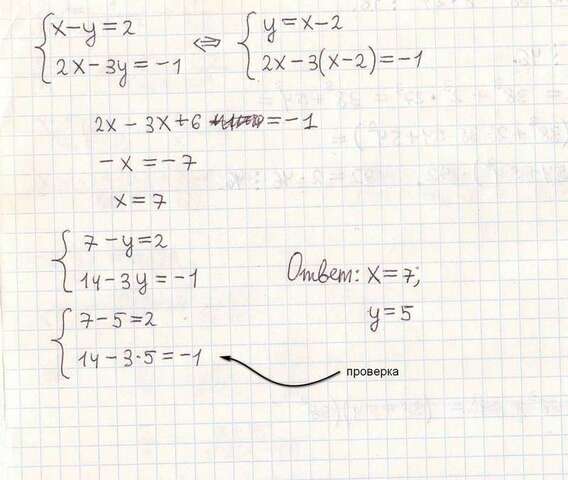 x-y=2 ⇔ y=x-2
2x-3y=-1 2x-3(x-2)=-1
2x-3x+6 =-1
-x=-7
x=7
7-y=2
14-3y=-1
Ответ: x=7;
y=5
7-5=2
14-3·5=-1
проверка